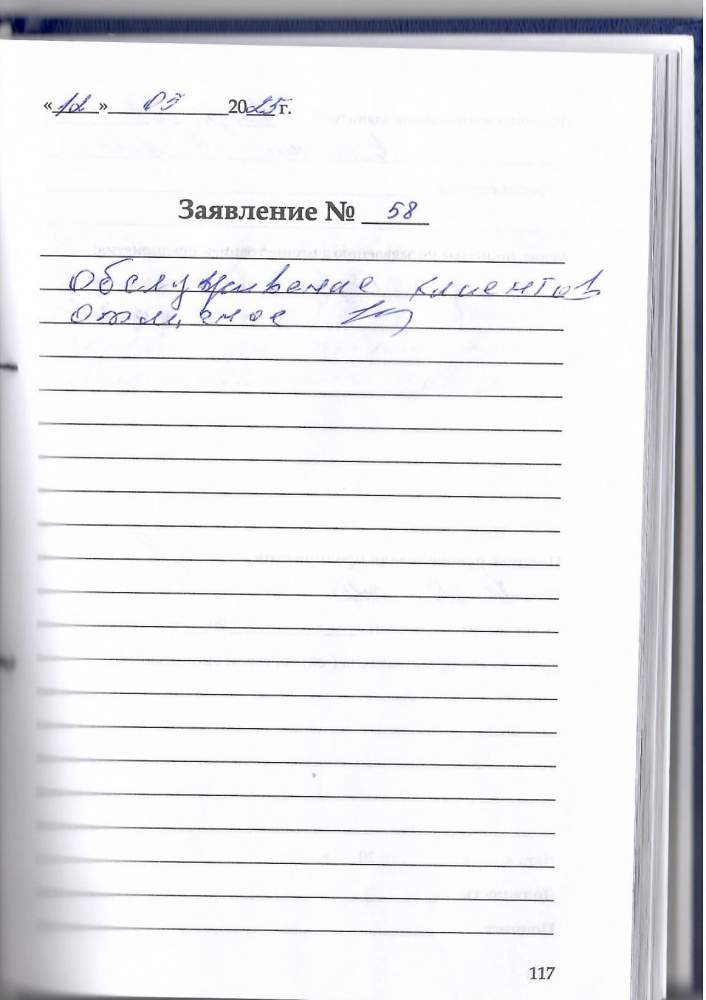 «12» 05 2025 г.
Заявление № 58
Обслуживание клиентов
отличное
117